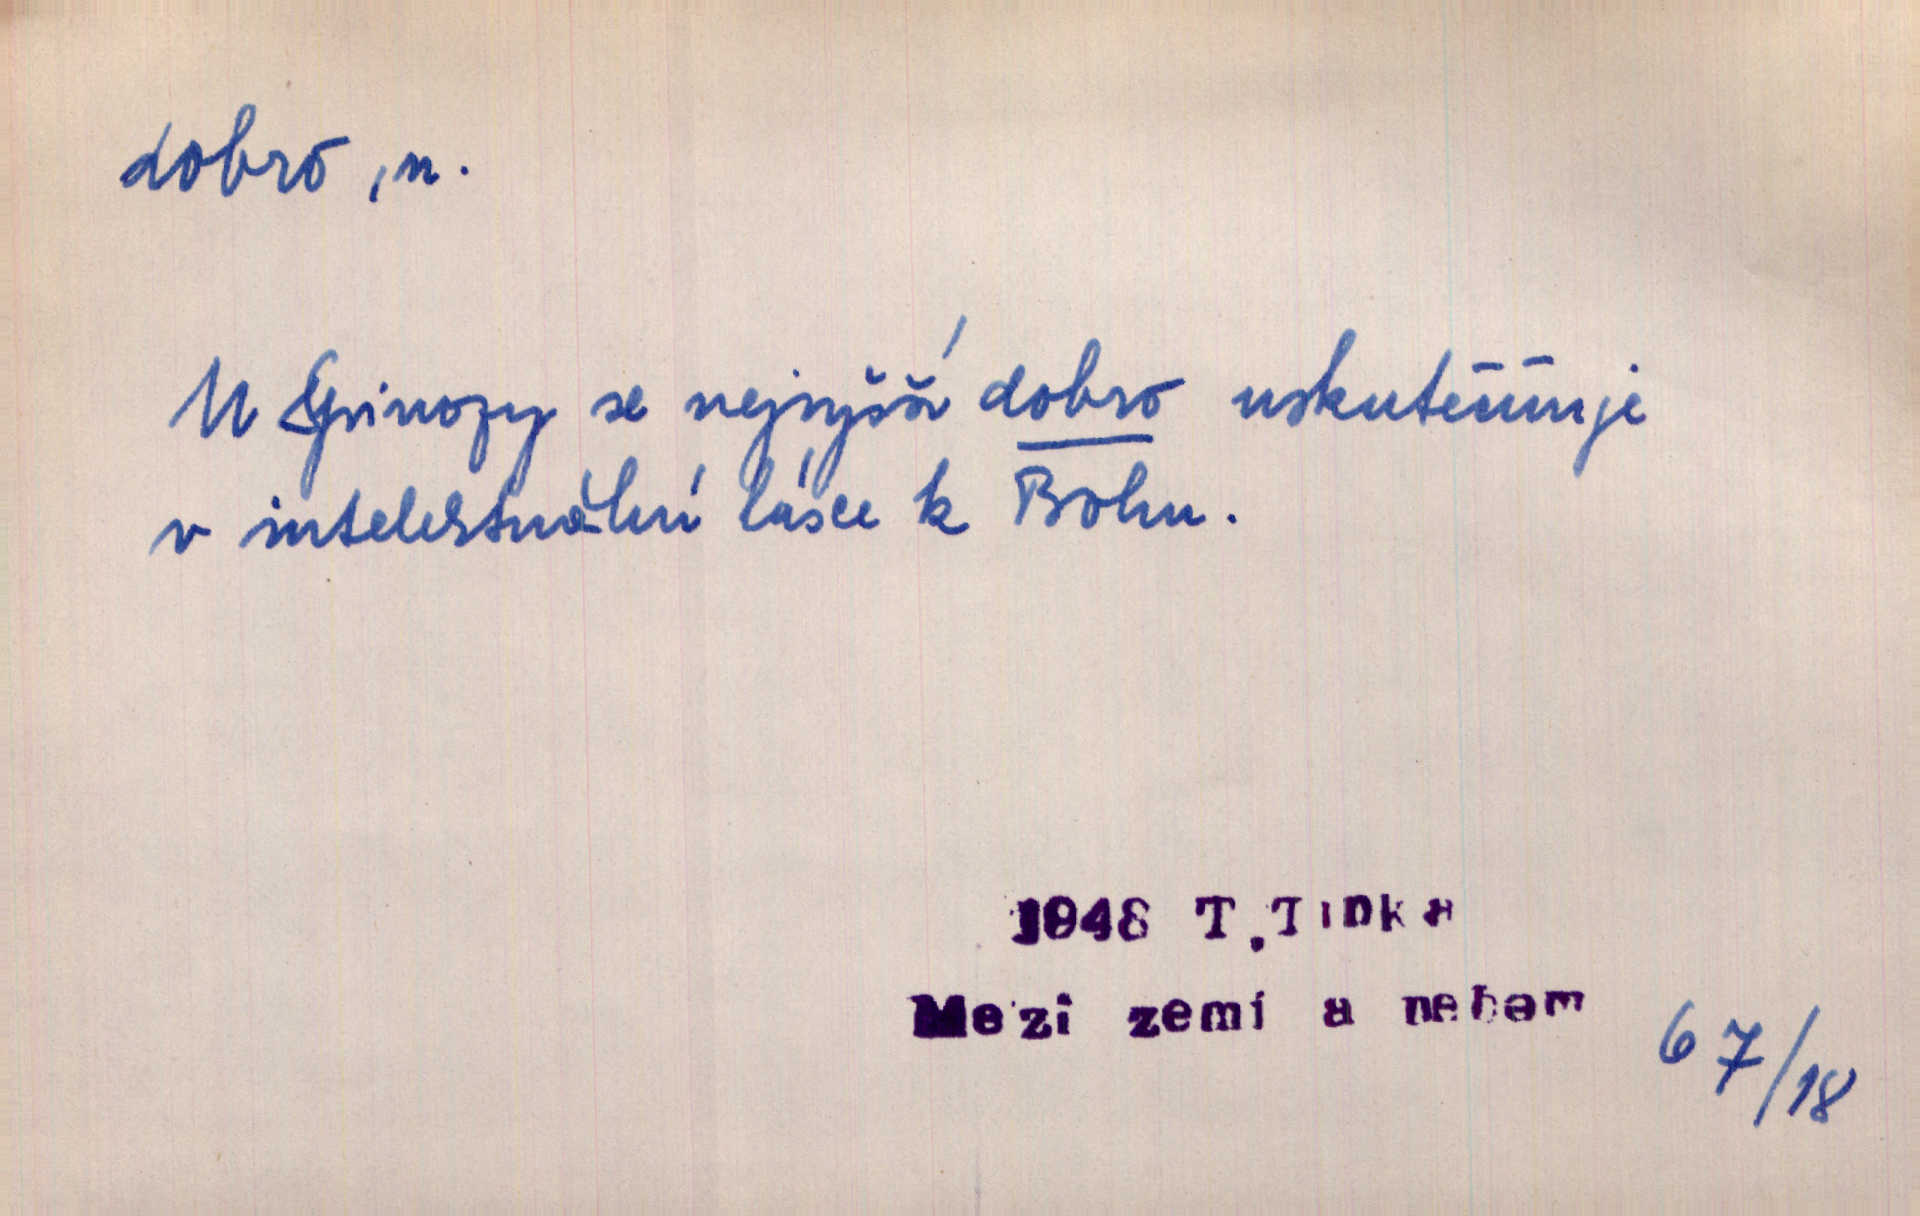 dobro, n.
U Spinozy se nejvyšší dobro uskutečňuje
v intelektuální lásce k Bohu.
1948 T.Tinka
Mezi zemí a nebem
67/18